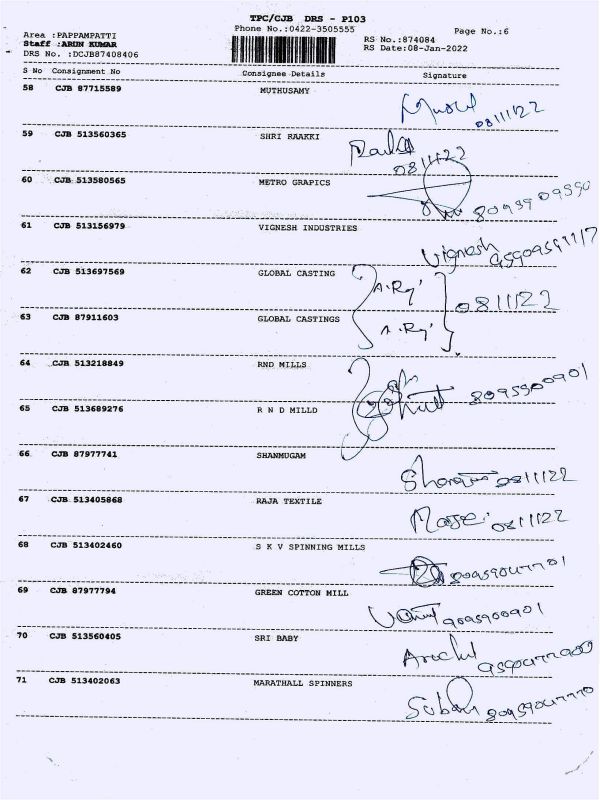 TPC/CJB DRS - P103
Area :PAPPAMPATTI Phone No.:0422-3505555 Page No.:6
Staff :ARUN KUMAR RS No.:874084
DRS No. :DCJB87408406 RS Date:08-Jan-2022
S No Consignment No Consignee Details Signature
58 CJB 87715589 MUTHUSAMY
08/11/22
59 CJB 513560365 SHRI RAAKKI
08/11/22
60 CJB 513580565 METRO GRAPICS
61 CJB 513156979 VIGNESH INDUSTRIES
Vignesh
62 CJB 513697569 GLOBAL CASTING
A.Raj
08/11/22
63 CJB 87911603 GLOBAL CASTINGS
A.Raj
64 CJB 513218849 RND MILLS
65 CJB 513689276 R N D MILLD
66 CJB 87977741 SHANMUGAM
08/11/22
67 CJB 513405868 RAJA TEXTILE
08/11/22
68 CJB 513402460 S K V SPINNING MILLS
69 CJB 87977794 GREEN COTTON MILL
9095900901
70 CJB 513560405 SRI BABY
71 CJB 513402063 MARATHALL SPINNERS